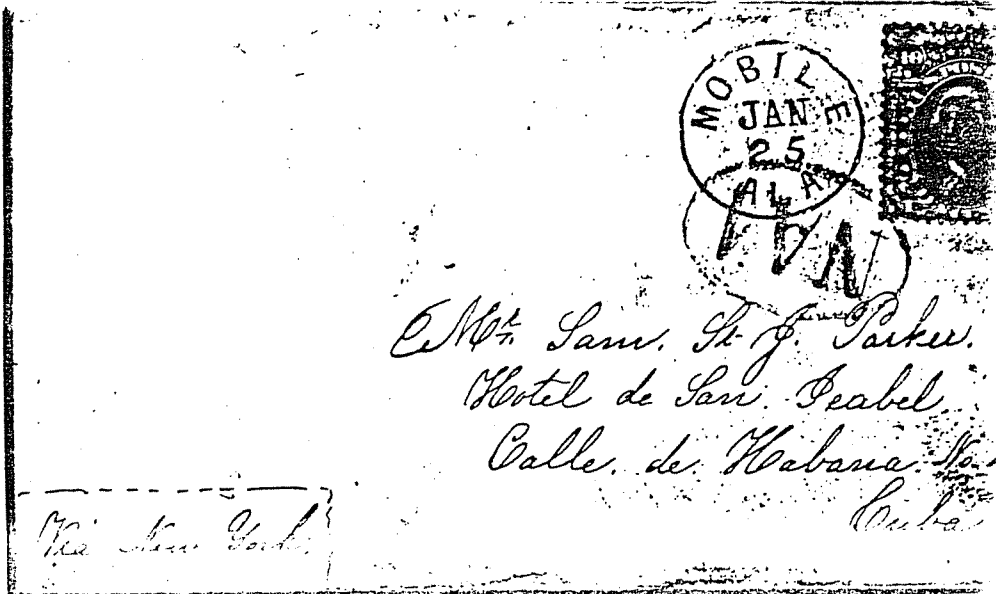 MOBILE
JAN
25
ALA
10
Mr. Sam. St. J. Parker.
Hotel de San. Isabel.
Calle. de Habana. No.
Cuba
Via New York.